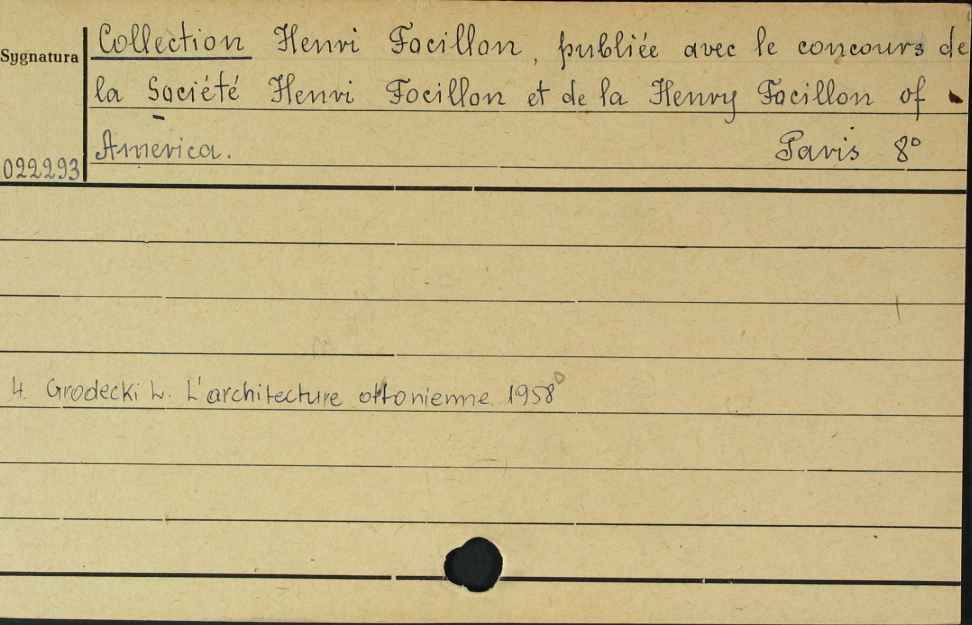 Sygnatura
022293
Collection Henri Focillon, publiée avec le concours de
la Société Henri Focillon et de la Henry Focillon of
America. Paris 8°
4. Grodecki L. L'architecture ottonienne. 1958